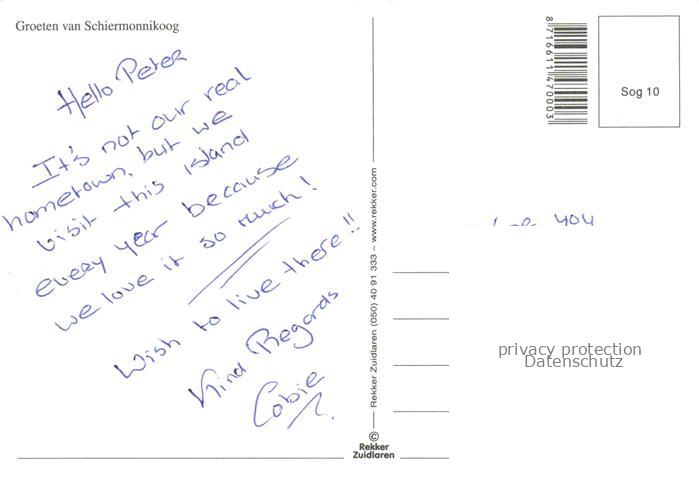 Groeten van Schiermonnikoog
Hello Peter
It's not our real
hometown, but we
visit this island
every year because
we love it so much!
Wish to live there!!
Kind Regards
Cobie
Rekker Zuidlaren (050) 40 91 333 ~ www.rekker.com
©
Rekker
Zuidlaren
8716611470003
Sog 10
you
privacy protection
Datenschutz